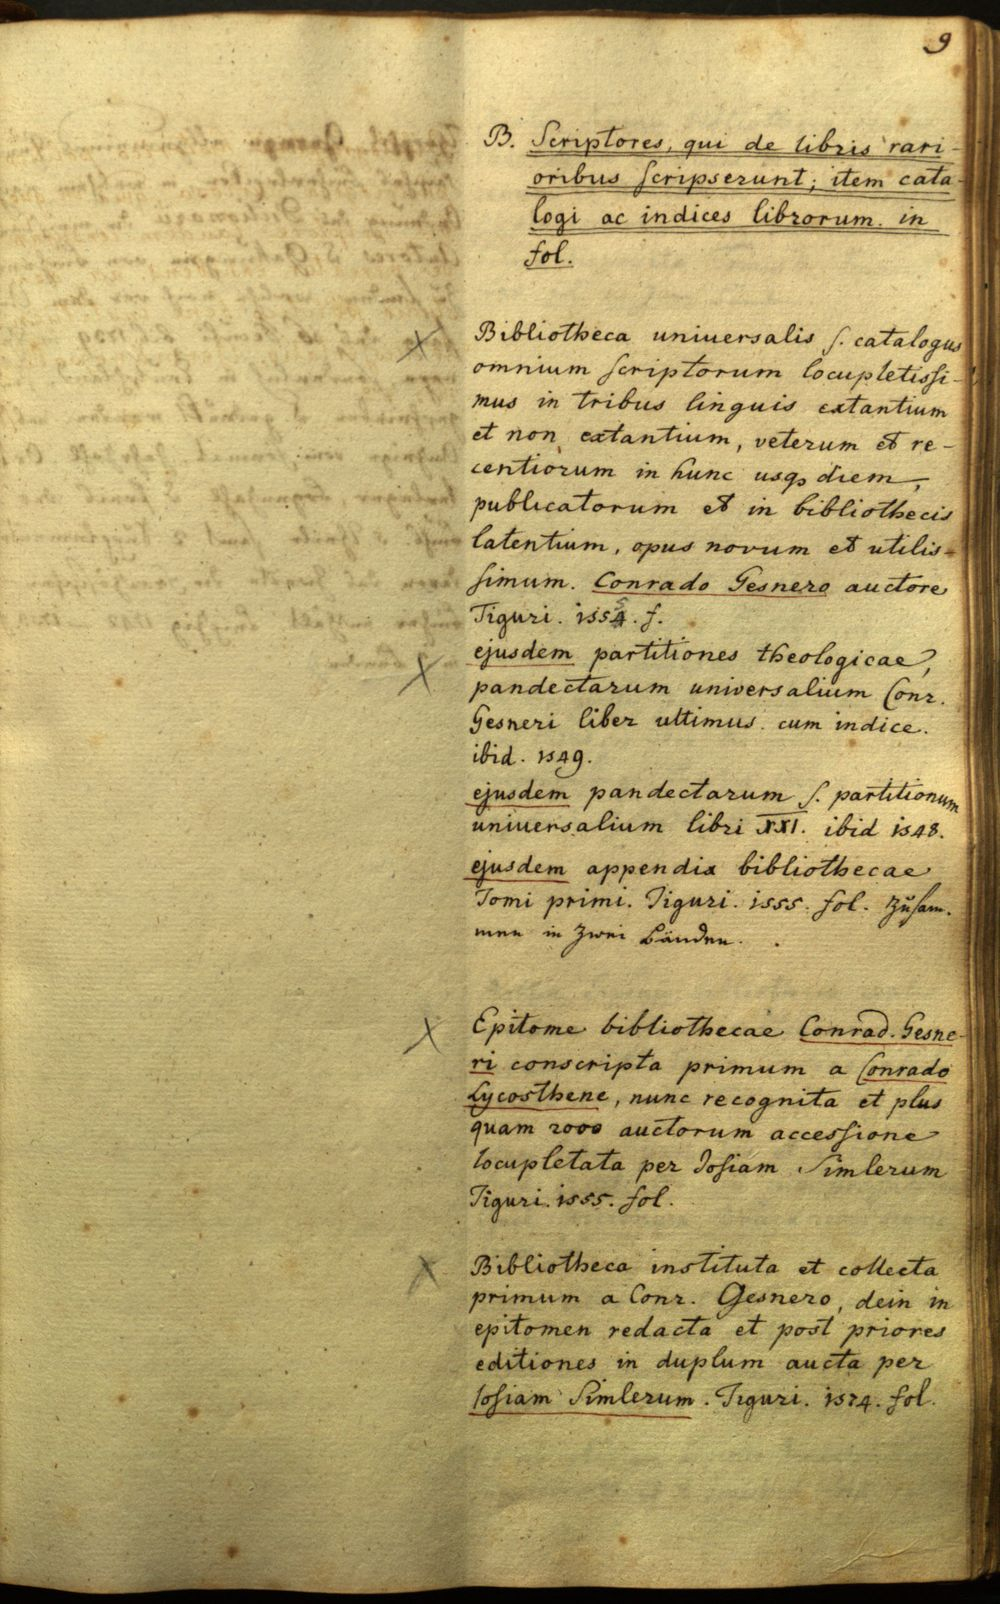 9
B. Scriptores, qui de libris rari-
oribus scripserunt; item cata-
logi ac indices librorum. in
fol.
Bibliotheca uniuersalis s. catalogus
omnium scriptorum locupletissi-
mus in tribus linguis extantium
et non extantium, veterum et re-
centiorum in hunc usq3 diem,
publicatorum et in bibliothecis
latentium, opus novum et utilis-
simum. Conrado Gesnero auctore
Tiguri. f.
ejusdem partitiones theologicae,
pandectarum universalium Conr.
Gesneri liber ultimus. cum indice.
ibid. 1549.
ejusdem pandectarum s. partitionum
uniuersalium libri XXI. ibid 1548.
ejusdem appendix bibliothecae
Tomi primi. Tiguri. 1555. fol. Zusam-
men in zwei Bänden.
Epitome bibliothecae Conrad. Gesne-
ri conscripta primum a Conrado
Lycosthene, nunc recognita et plus
quam 2000 auctorum accessione
locupletata per Iosiam Simlerum
Tiguri. 1555. fol.
Bibliotheca instituta et collecta
primum a Conr. Gesnero, dein in
epitomen redacta et post priores
editiones in duplum aucta per
Iosiam Simlerum. Tiguri. 1574. fol.